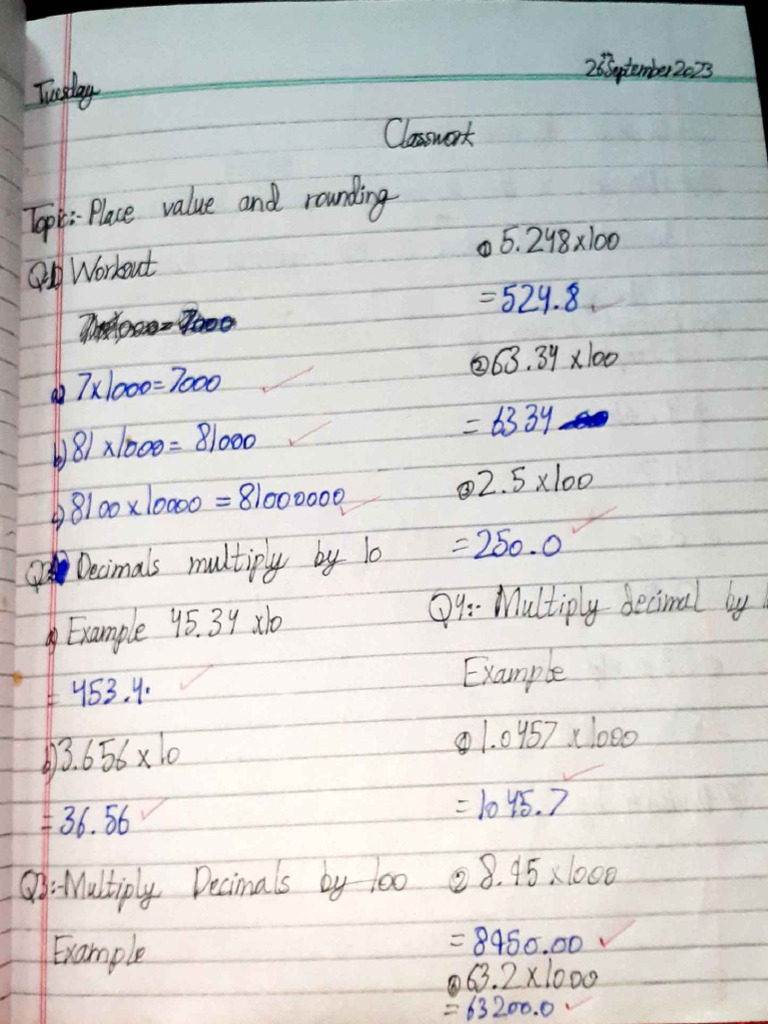 Tuesday
26th September 2023
Classwork
Topic:- Place value and rounding
Q1) Workout
a) 7x1000=7000
b) 81 x1000= 81000
c) 8100 x10000 = 81000000
Q2 Decimals multiply by 10
a) Example 45.34 x10
= 453.4.
b) 3.656 x 10
= 36.56
Q3:-Multiply Decimals by 100
Example
① 5.248x100
= 524.8
② 63.34 x100
= 6334
③ 2.5 x100
= 250.0
Q4:- Multiply decimal by
Example
① 1.0457 x1000
= 1045.7
② 8.45 x1000
= 8450.00
③ 63.2 x1000
= 63200.0